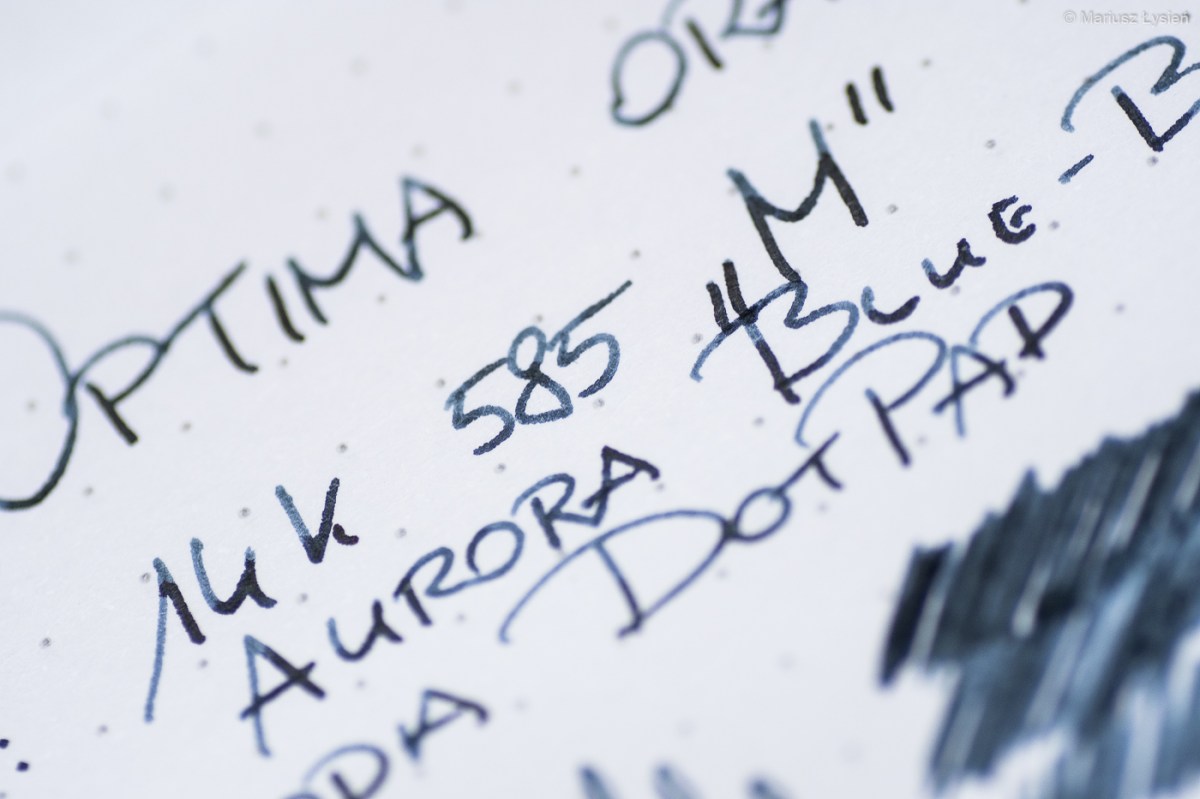 © Mariusz Lysień
OPTIMA
14K 585 "M"
AURORA BLUE-B
DOT PAD